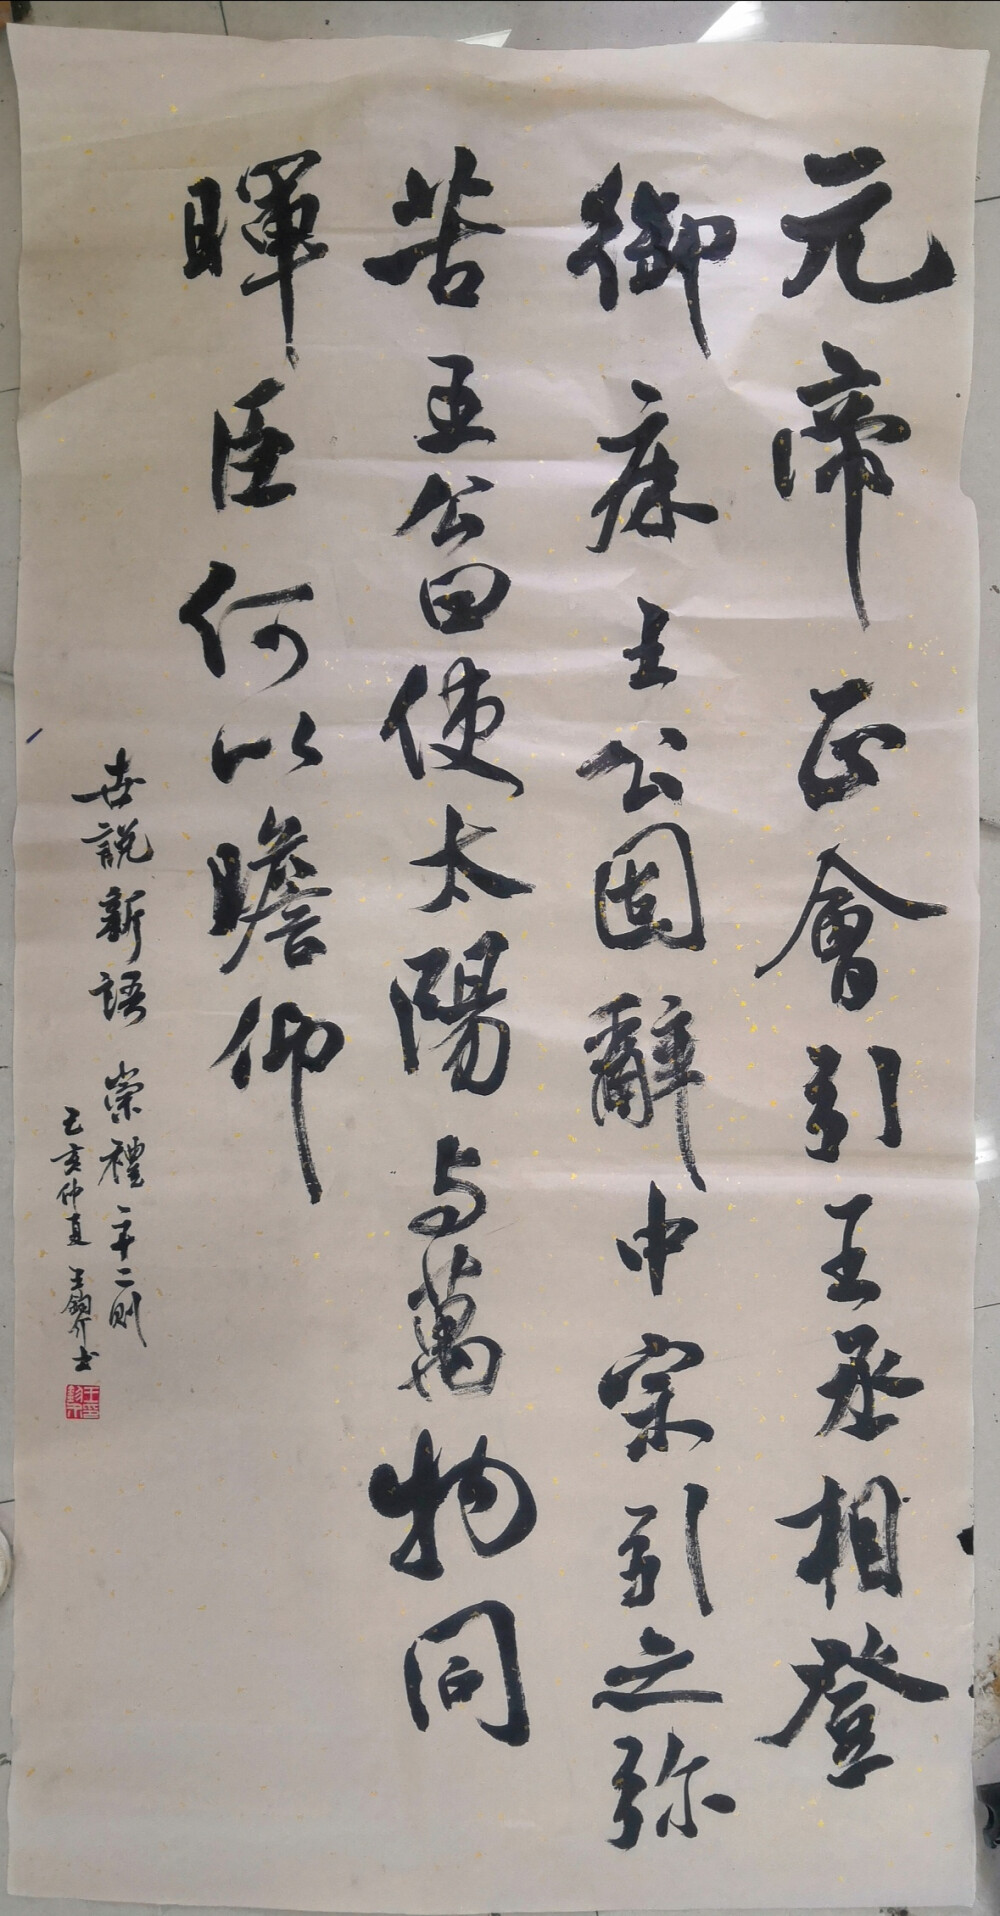 元帝正會引王丞相登
御床王公固辭中宗引之弥
苦王公曰使太陽与萬物同
暉臣何以瞻仰
世說新語 崇禮 第二則
己亥仲夏 王鈞介書